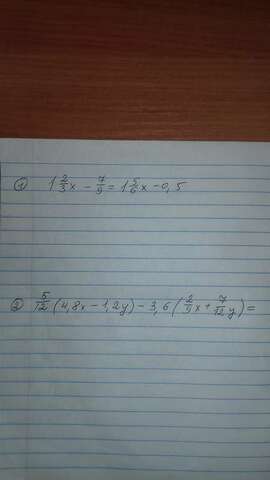 ① 1 2/3 x - 7/9 = 1 5/6 x - 0,5
② 5/12 (4,8x - 1,2y) - 3,6 (2/9 x + 7/12 y) =